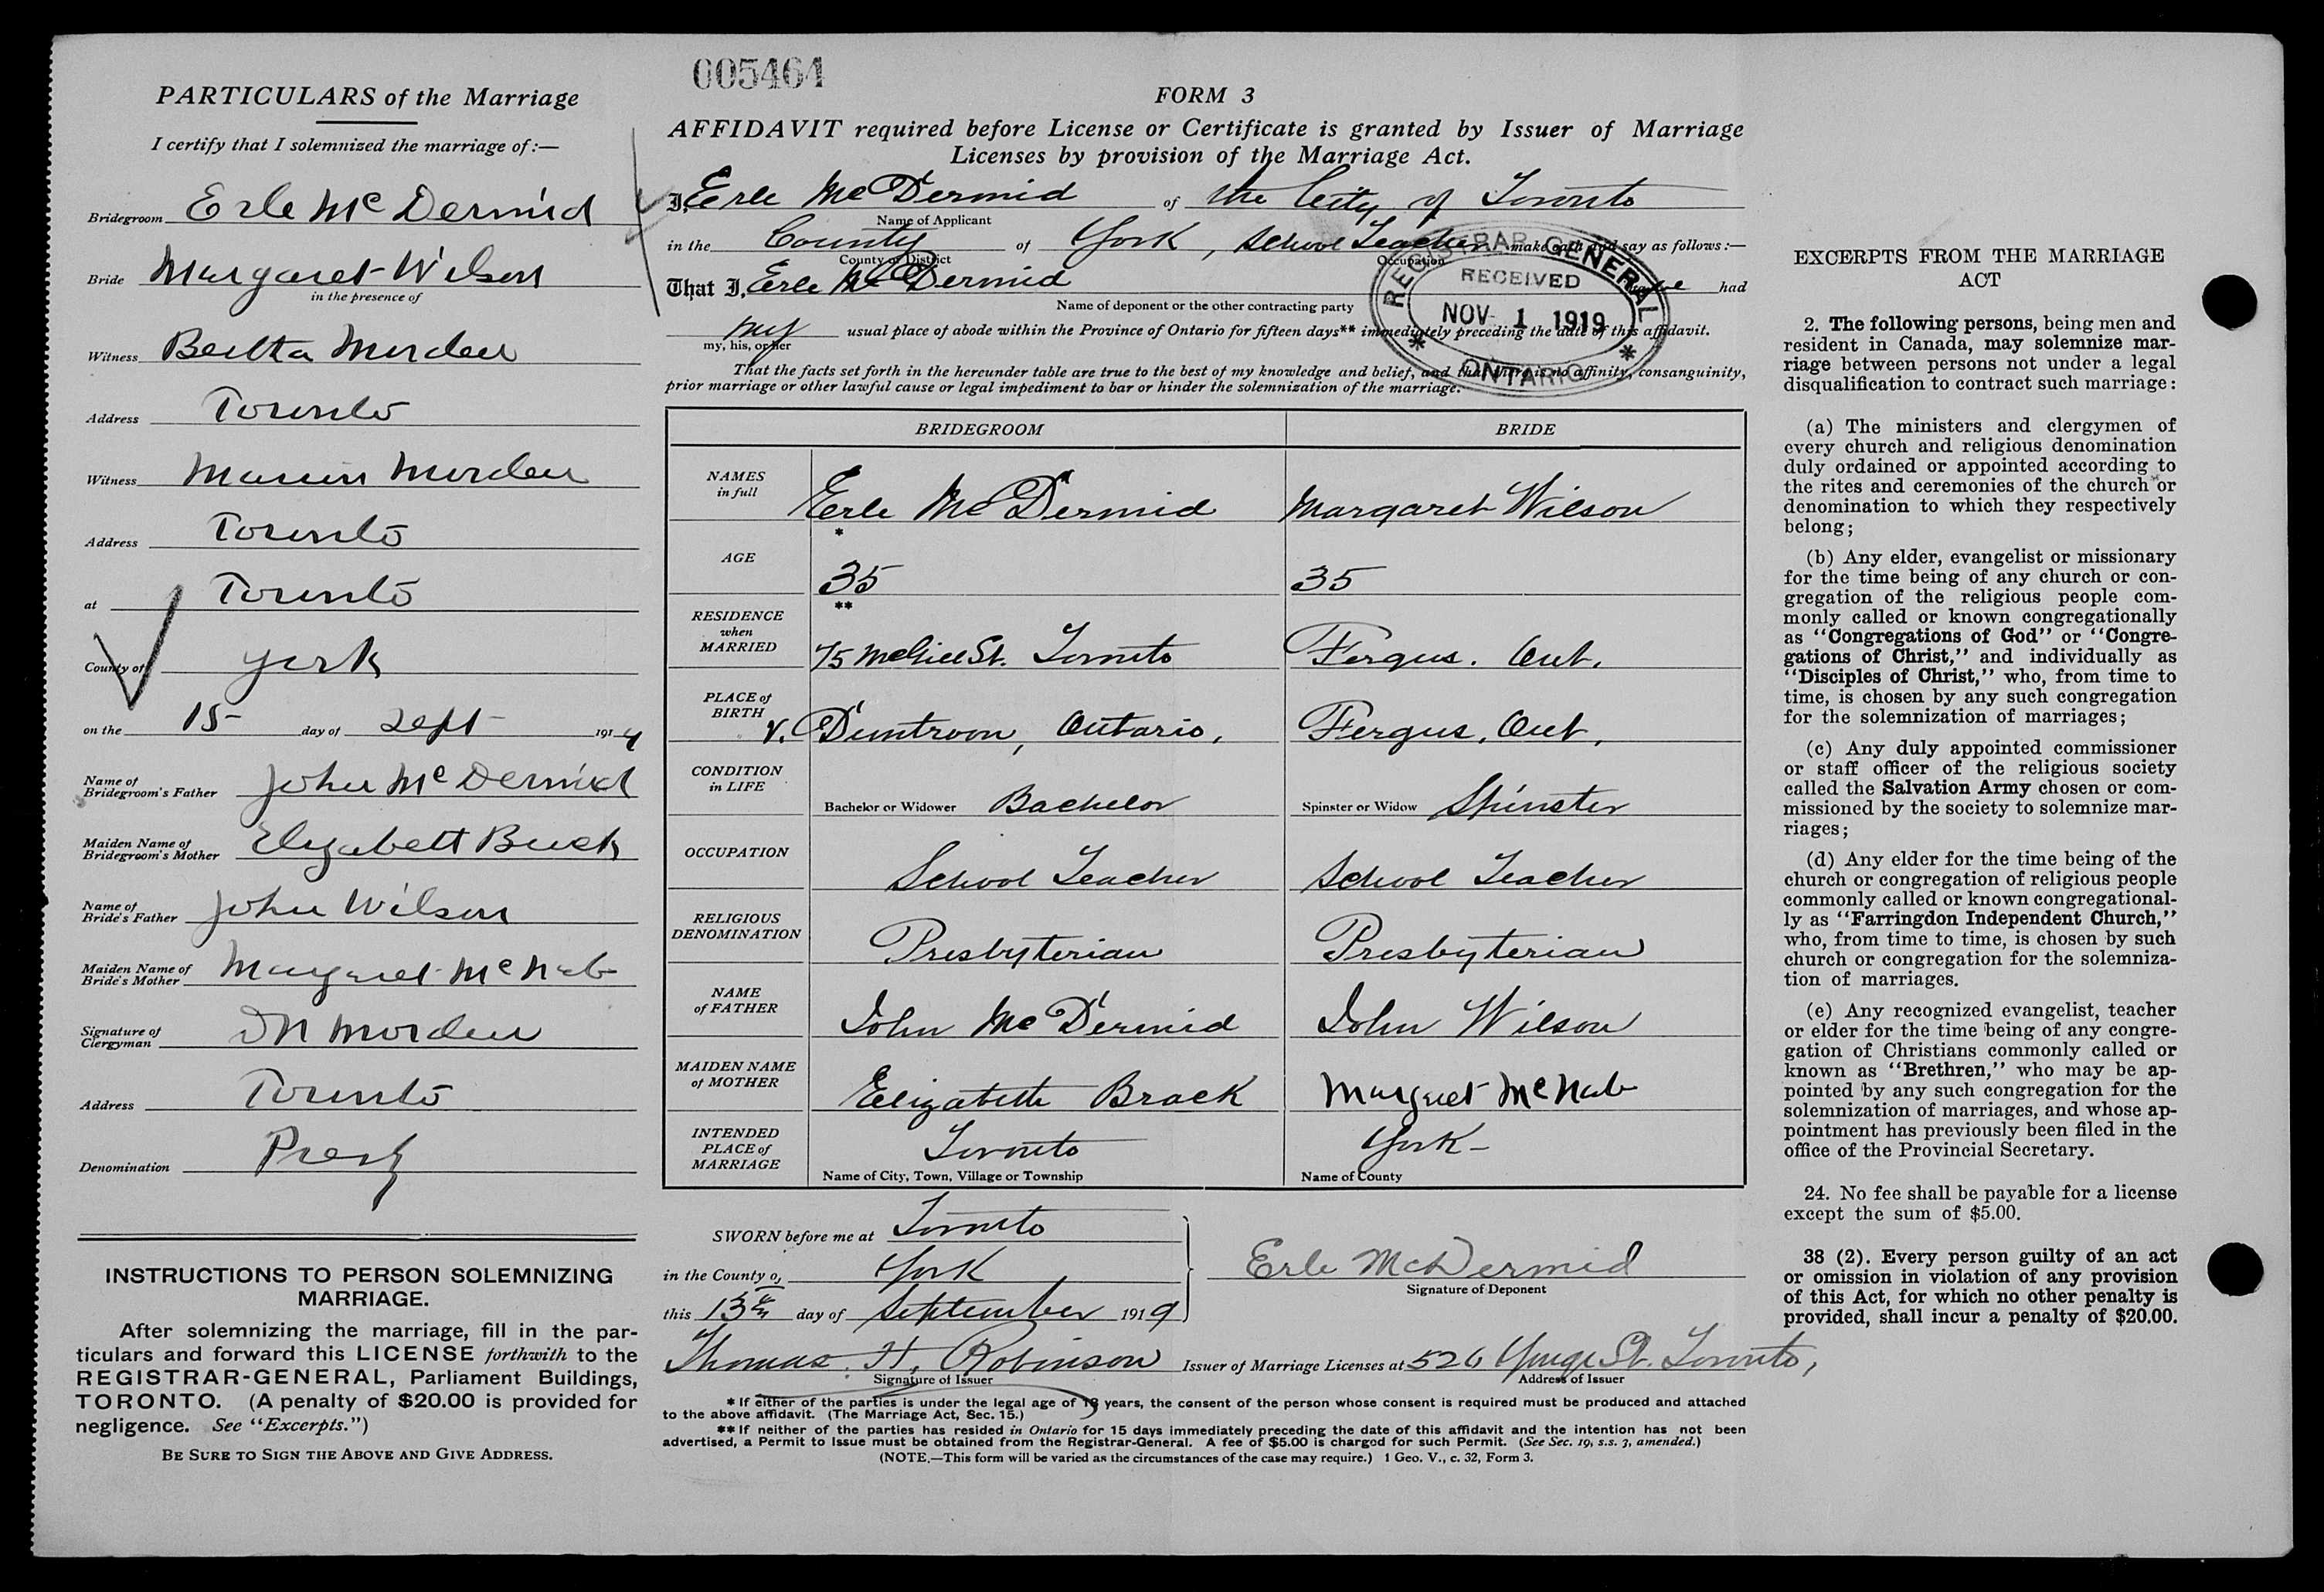 005464
PARTICULARS of the Marriage
I certify that I solemnized the marriage of:—
Bridegroom Erle McDermid
Bride Margaret Wilson
in the presence of
Witness Bertha Morden
Address Toronto
Witness Morden
Address Toronto
at Toronto
County of York
on the 15 day of Sept 191
Name of Bridegroom's Father John McDermid
Maiden Name of Bridegroom's Mother Elizabeth
Name of Bride's Father John Wilson
Maiden Name of Bride's Mother Margaret McNab
Signature of Clergyman Morden
Address Toronto
Denomination Presby
INSTRUCTIONS TO PERSON SOLEMNIZING
MARRIAGE.
After solemnizing the marriage, fill in the par-
ticulars and forward this LICENSE forthwith to the
REGISTRAR-GENERAL, Parliament Buildings,
TORONTO. (A penalty of $20.00 is provided for
negligence. See "Excerpts.")
BE SURE TO SIGN THE ABOVE AND GIVE ADDRESS.
FORM 3
AFFIDAVIT required before License or Certificate is granted by Issuer of Marriage
Licenses by provision of the Marriage Act.
I, Erle McDermid of the City of Toronto
Name of Applicant
in the County of York, School Teacher make oath and say as follows:—
County or District Occupation
That I, Erle McDermid have had
Name of deponent or the other contracting party
my usual place of abode within the Province of Ontario for fifteen days** immediately preceding the date of this affidavit.
my, his, or her
REGISTRAR GENERAL
RECEIVED
NOV 1 1919
* ONTARIO *
That the facts set forth in the hereunder table are true to the best of my knowledge and belief, and that there is no affinity, consanguinity,
prior marriage or other lawful cause or legal impediment to bar or hinder the solemnization of the marriage.
BRIDEGROOM BRIDE
NAMES in full Erle McDermid Margaret Wilson
*
AGE 35 35
**
RESIDENCE when MARRIED 75 McGill St. Toronto Fergus. Ont.
PLACE of BIRTH v. Duntroon, Ontario, Fergus, Ont,
CONDITION in LIFE Bachelor or Widower Bachelor Spinster or Widow Spinster
OCCUPATION School Teacher School Teacher
RELIGIOUS DENOMINATION Presbyterian Presbyterian
NAME of FATHER John McDermid John Wilson
MAIDEN NAME of MOTHER Elizabeth Brack Margaret McNab
INTENDED PLACE of MARRIAGE Toronto York
Name of City, Town, Village or Township Name of County
SWORN before me at Toronto
in the County of York
this 13th day of September 1919
Erle McDermid
Signature of Deponent
Thomas H. Robinson Issuer of Marriage Licenses at 526 Yonge St. Toronto,
Signature of Issuer Address of Issuer
* If either of the parties is under the legal age of 18 years, the consent of the person whose consent is required must be produced and attached
to the above affidavit. (The Marriage Act, Sec. 15.)
** If neither of the parties has resided in Ontario for 15 days immediately preceding the date of this affidavit and the intention has not been
advertised, a Permit to Issue must be obtained from the Registrar-General. A fee of $5.00 is charged for such Permit. (See Sec. 19, s.s. 3, amended.)
(NOTE.—This form will be varied as the circumstances of the case may require.) 1 Geo. V., c. 32, Form 3.
EXCERPTS FROM THE MARRIAGE
ACT
2. The following persons, being men and
resident in Canada, may solemnize mar-
riage between persons not under a legal
disqualification to contract such marriage:
(a) The ministers and clergymen of
every church and religious denomination
duly ordained or appointed according to
the rites and ceremonies of the church or
denomination to which they respectively
belong;
(b) Any elder, evangelist or missionary
for the time being of any church or con-
gregation of the religious people com-
monly called or known congregationally
as "Congregations of God" or "Congre-
gations of Christ," and individually as
"Disciples of Christ," who, from time to
time, is chosen by any such congregation
for the solemnization of marriages;
(c) Any duly appointed commissioner
or staff officer of the religious society
called the Salvation Army chosen or com-
missioned by the society to solemnize mar-
riages;
(d) Any elder for the time being of the
church or congregation of religious people
commonly called or known congregational-
ly as "Farringdon Independent Church,"
who, from time to time, is chosen by such
church or congregation for the solemniza-
tion of marriages.
(e) Any recognized evangelist, teacher
or elder for the time being of any congre-
gation of Christians commonly called or
known as "Brethren," who may be ap-
pointed by any such congregation for the
solemnization of marriages, and whose ap-
pointment has previously been filed in the
office of the Provincial Secretary.
24. No fee shall be payable for a license
except the sum of $5.00.
38 (2). Every person guilty of an act
or omission in violation of any provision
of this Act, for which no other penalty is
provided, shall incur a penalty of $20.00.